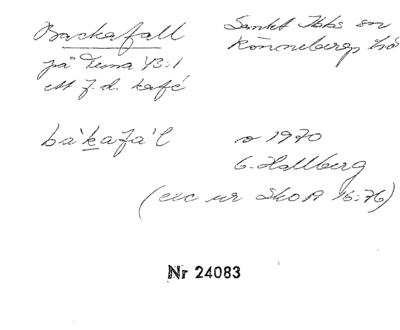 Backafall
på Tuna 43:1
ett f.d. kafé
Sankt Ibbs sn
Rönnebergs hd
bàkafàl
1970
G. Hallberg
(exc ur SkOA 16:76)
Nr 24083